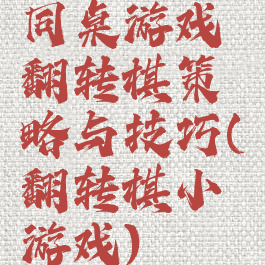 同桌游戏
翻转棋策
略与技巧(
翻转棋小
游戏)